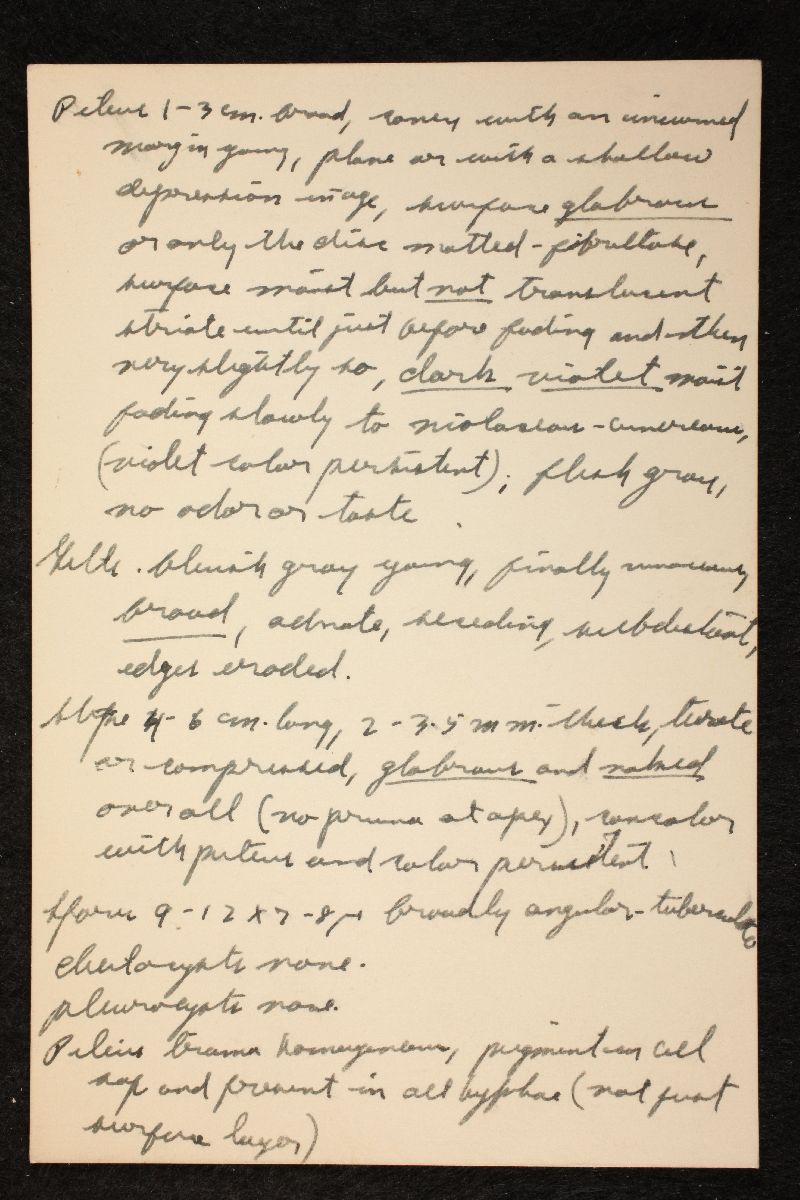 Pileus 1-3 cm. broad, conic with an incurved
margin young, plane or with a shallow
depression in age, surface glabrous
or only the disc matted-fibrillose,
surface moist but not translucent
striate until just before fading and then
very slightly so, dark violet moist
fading slowly to violaceous-cinereous,
(violet color persistent); flesh gray,
no odor or taste.
Gills. bluish gray young, finally
broad, adnate, seceding, subdistant,
edges eroded.
Stipe 4-6 cm. long, 2-3.5 mm. thick, terete
or compressed, glabrous and naked
over all (no pruina at apex), concolor
with pileus and color persistent
Spores 9-12 x 7-8 μ broadly angular-tuberculate
cheilocysts none.
pleurocysts none.
Pileus trama homogeneous, pigment in cell
sap and present in all hyphae (not just
surface layer)